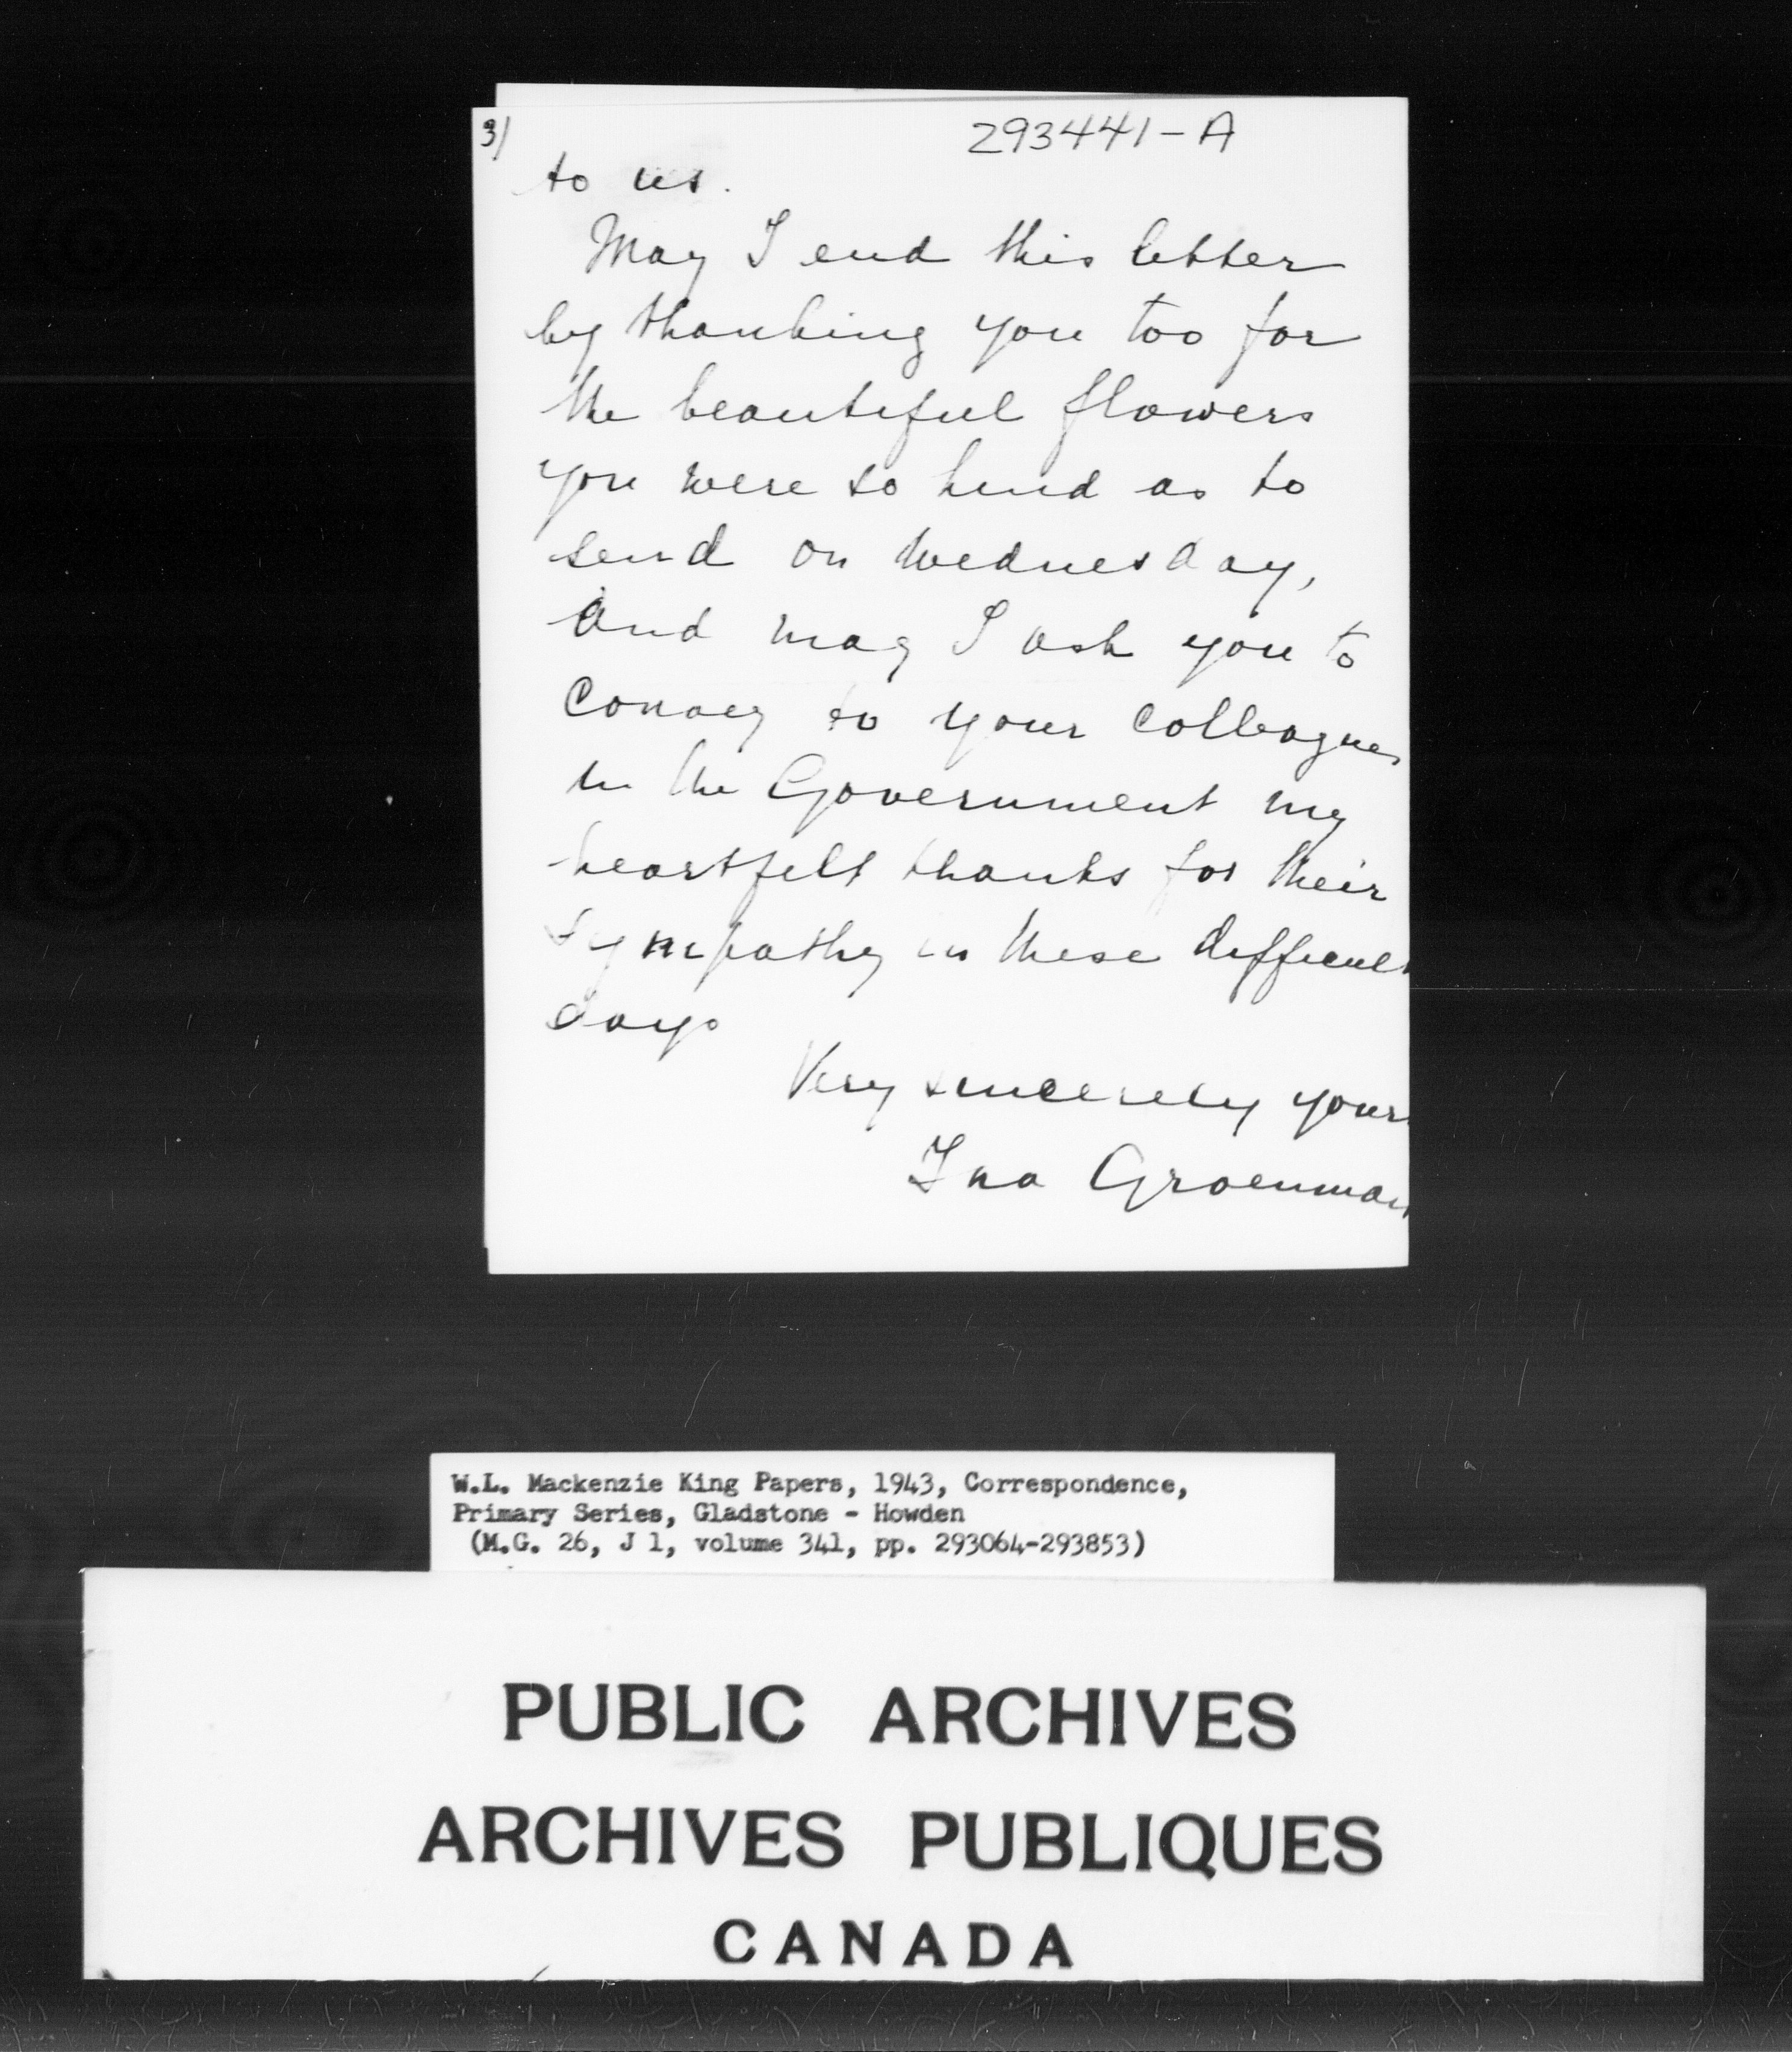 3/
293441-A
to us.
May I end this letter
by thanking you too for
the beautiful flowers
you were so kind as to
send on Wednesday,
and may I ask you to
convey to your colleagues
in the Government my
heartfelt thanks for their
sympathy in these difficult
days
Very sincerely yours
Ina Groenman
W.L. Mackenzie King Papers, 1943, Correspondence,
Primary Series, Gladstone - Howden
(M.G. 26, J 1, volume 341, pp. 293064-293853)
PUBLIC ARCHIVES
ARCHIVES PUBLIQUES
CANADA